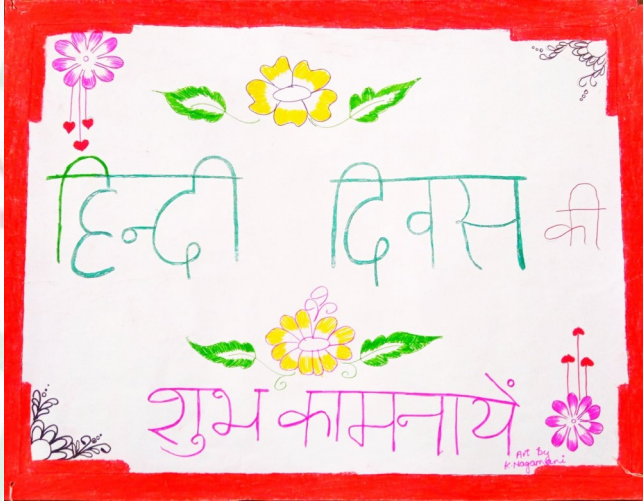 हिन्दी दिवस की
शुभ कामनायें
Art By
K.Nagamani